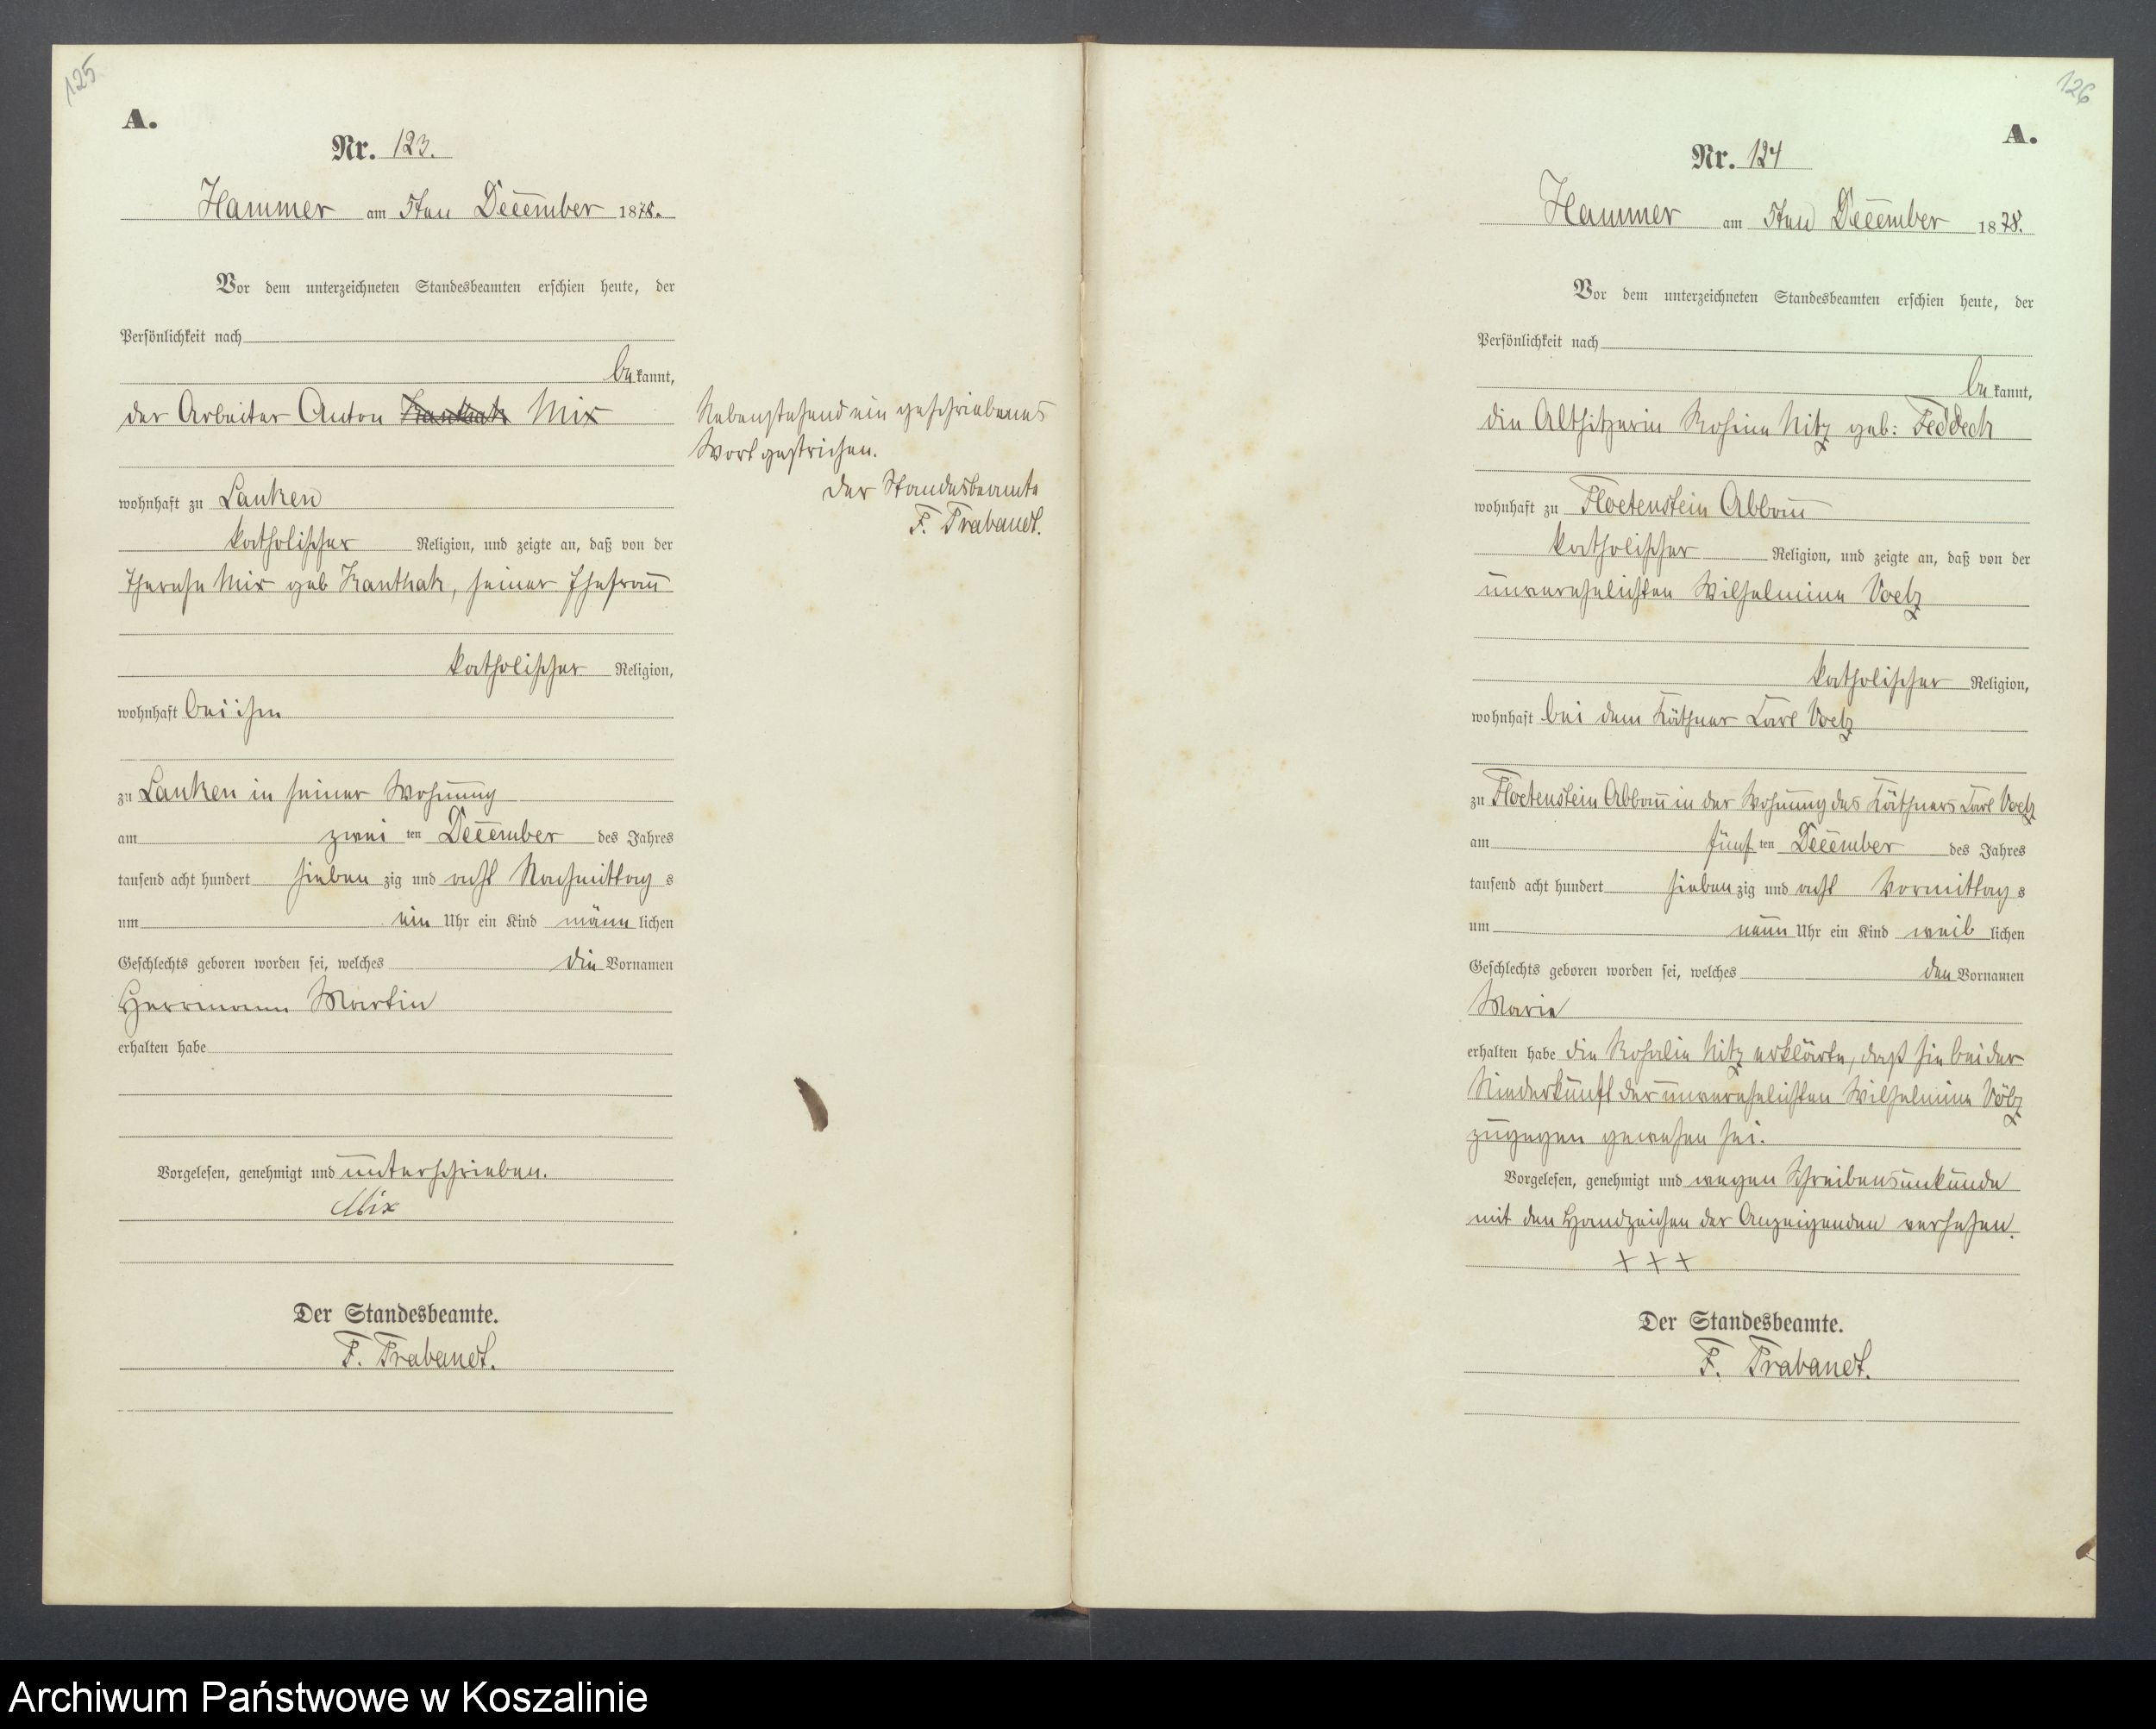 125
A.
Nr. 123.
Hammer am 5ten December 1878.
Vor dem unterzeichneten Standesbeamten erschien heute, der
Persönlichkeit nach
bekannt,
der Arbeiter Anton Kanthak Mix
wohnhaft zu Lanken
katholischer Religion, und zeigte an, daß von der
Therese Mix geb Kanthak, seiner Ehefrau
katholischer Religion,
wohnhaft bei ihm
zu Lanken in seiner Wohnung
am zwei ten December des Jahres
tausend acht hundert sieben zig und acht Nachmittag s
um ein Uhr ein Kind männ lichen
Geschlechts geboren worden sei, welches die Vornamen
Herrmann Martin
erhalten habe
Vorgelesen, genehmigt und unterschrieben.
Mix
Der Standesbeamte.
F. Trabandt.
Nebenstehend ein geschriebenes
Wort gestrichen.
Der Standesbeamte
F. Trabandt.
126
A.
Nr. 124
Hammer am 5ten December 1878.
Vor dem unterzeichneten Standesbeamten erschien heute, der
Persönlichkeit nach
bekannt,
die Altsitzerin Rosine Nitz geb: Feddeck
wohnhaft zu Floetenstein Abbau
katholischer Religion, und zeigte an, daß von der
unverehelichten Wilhelmine Voelz
katholischer Religion,
wohnhaft bei dem Käthner Carl Voelz
zu Floetenstein Abbau in der Wohnung des Käthners Carl Voelz
am fünf ten December des Jahres
tausend acht hundert sieben zig und acht Vormittag s
um neun Uhr ein Kind weib lichen
Geschlechts geboren worden sei, welches den Vornamen
Marie
erhalten habe die Rosalie Nitz erklärte, daß sie bei der
Niederkunft der unverehelichten Wilhelmine Völz
zugegen gewesen sei.
Vorgelesen, genehmigt und wegen Schreibensunkunde
mit den Handzeichen der Anzeigenden versehen.
+ + +
Der Standesbeamte.
F. Trabandt.
Archiwum Państwowe w Koszalinie